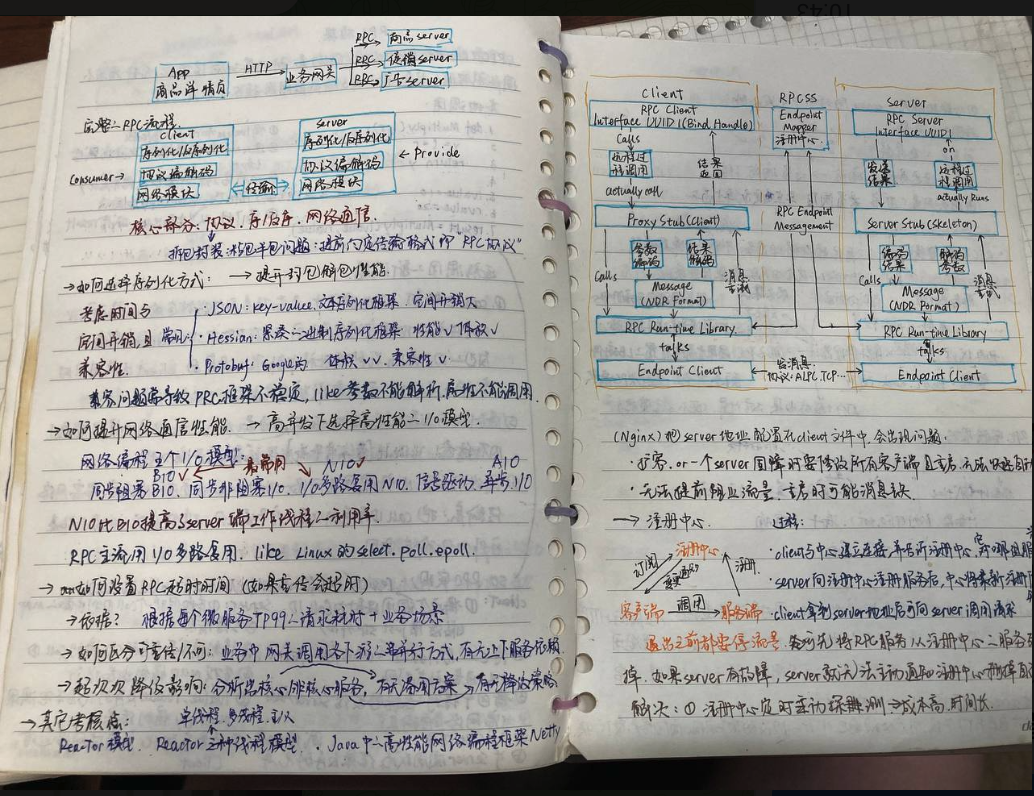 App
商品详情页
HTTP
业务网关
RPC
RPC
RPC
商品server
促销server
广告server
完整之RPC流程
client
server
序列化/反序列化
序列化/反序列化
协议编解码
协议编解码
网络模块
网络模块
传输
Consumer→
← Provide
核心部分：协议、序/反序、网络通信
拆包封装 粘包半包问题：提前约定传输格式即"RPC协议"
→如何选择序列化方式： → 提升封包解包性能
考虑时间与
空间开销，且
兼容性
常用
· JSON：key-value 文本序列化框架、空间开销大
· Hessian：紧凑二进制序列化框架 性能✓ 体积✓
· Protobuf：Google的 体积✓✓ 兼容性✓
兼容问题常导致PRC框架不稳定，like参数不能解析，属性不能调用
→如何提升网络通信性能 → 高并发下选择高性能之I/O模型
网络编程五个I/O模型：
BIO✓
最常用
NIO✓
AIO
同步阻塞BIO、同步非阻塞I/O、I/O多路复用NIO、信号驱动、异步I/O
NIO比BIO提高了server端工作线程之利用率
RPC主流用I/O多路复用，like Linux的select、poll、epoll
→ 如何设置RPC超时时间（如果重传会超时）
→依据？ 根据每个微服务TP99之请求耗时 + 业务场景
→ 如何区分可重传/不可：业务中网关调用各下游之串并行方式，有无上下服务依赖
→ 分析出核心/非核心服务，→有无备用方案→有无降级策略
→其它考核点：
单线程、多线程、主从
Reactor模型 Reactor三种线程模型 · Java中之高性能网络编程框架Netty
Client
RPC Client
Interface UUID (Bind, Handle)
Calls
远程过
程调用
结果
返回
actually call
Proxy Stub(Client)
参数
编码
结果
解码
Calls
消息
Message
(NDR Format)
RPC Run-time Library
talks
Endpoint Client
RPCSS
Endpoint
Mapper
注册中心
RPC Endpoint
Messagement
发消息
协议：ALPC、TCP...
Server
RPC Server
Interface UUID
发送
结果
on
远程过
程调用
actually Runs
Server Stub (skeleton)
编码
结果
解码
参数
Calls
消息
Message
(NDR Format)
RPC Run-time Library
talks
Endpoint Client
(Nginx)把server地址配置在client文件中，会出现问题：
· 扩容，or一个server回降时要修改所有客户端且重启，无法
· 无法提前阻止流量，重启时可能消息缺
→ 注册中心
过程：
订阅
注册中心
注册
客户端
调用
服务端
· client与中心建立连接，并告诉注册中心，它
· server向注册中心注册服务后，中心将
· client拿到server地址后可向server调用请求
退出之前都要停流量 先将RPC服务从注册中心之服务
掉，如果server有故障，server无法主动通知注册中心
解决：① 注册中心定时主动探测→成本高，时间长